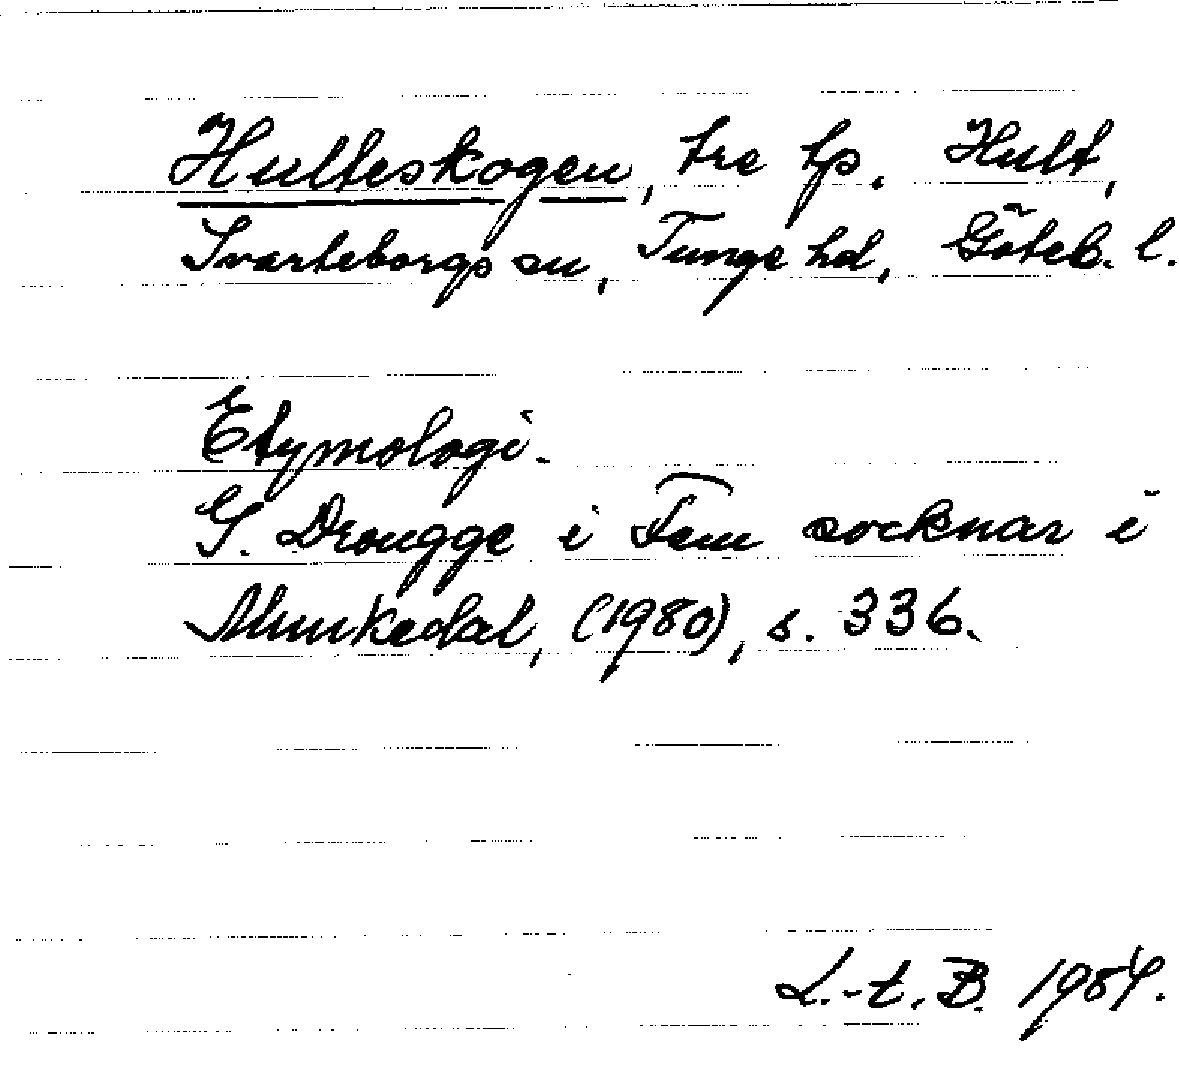 Hulteskogen, tre lp. Hult,
Svarteborgs sn, Tunge hd, Göteb. l.
Etymologi.
G. Drougge i Fem socknar i
Munkedal, (1980), s. 336.
L.-t. B. 1984.